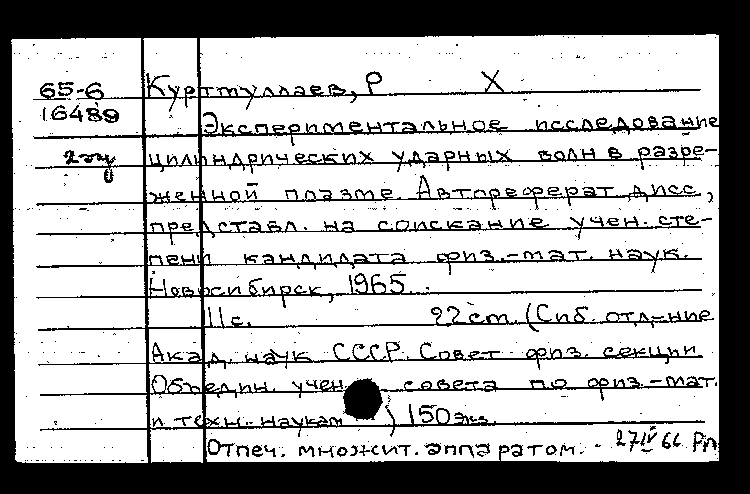 65-6 Куртмуллаев, Р Х
16489
Экспериментальное исследование
2-

цилиндрических ударных волн в разре-
женной плазме. Автореферат дисс.,
представл. на соискание учен. сте-
пени кандидата физ.-мат. наук.
Новосибирск, 1965.
11 с. 22 cm. (Сиб. отд-ние
Акад. наук СССР. Совет физ. секции
Объедин. учен. совета по физ.-мат.
и техн. наукам) 150 экз.
Отпеч. множит. аппаратом. 27 IV 66 Рл